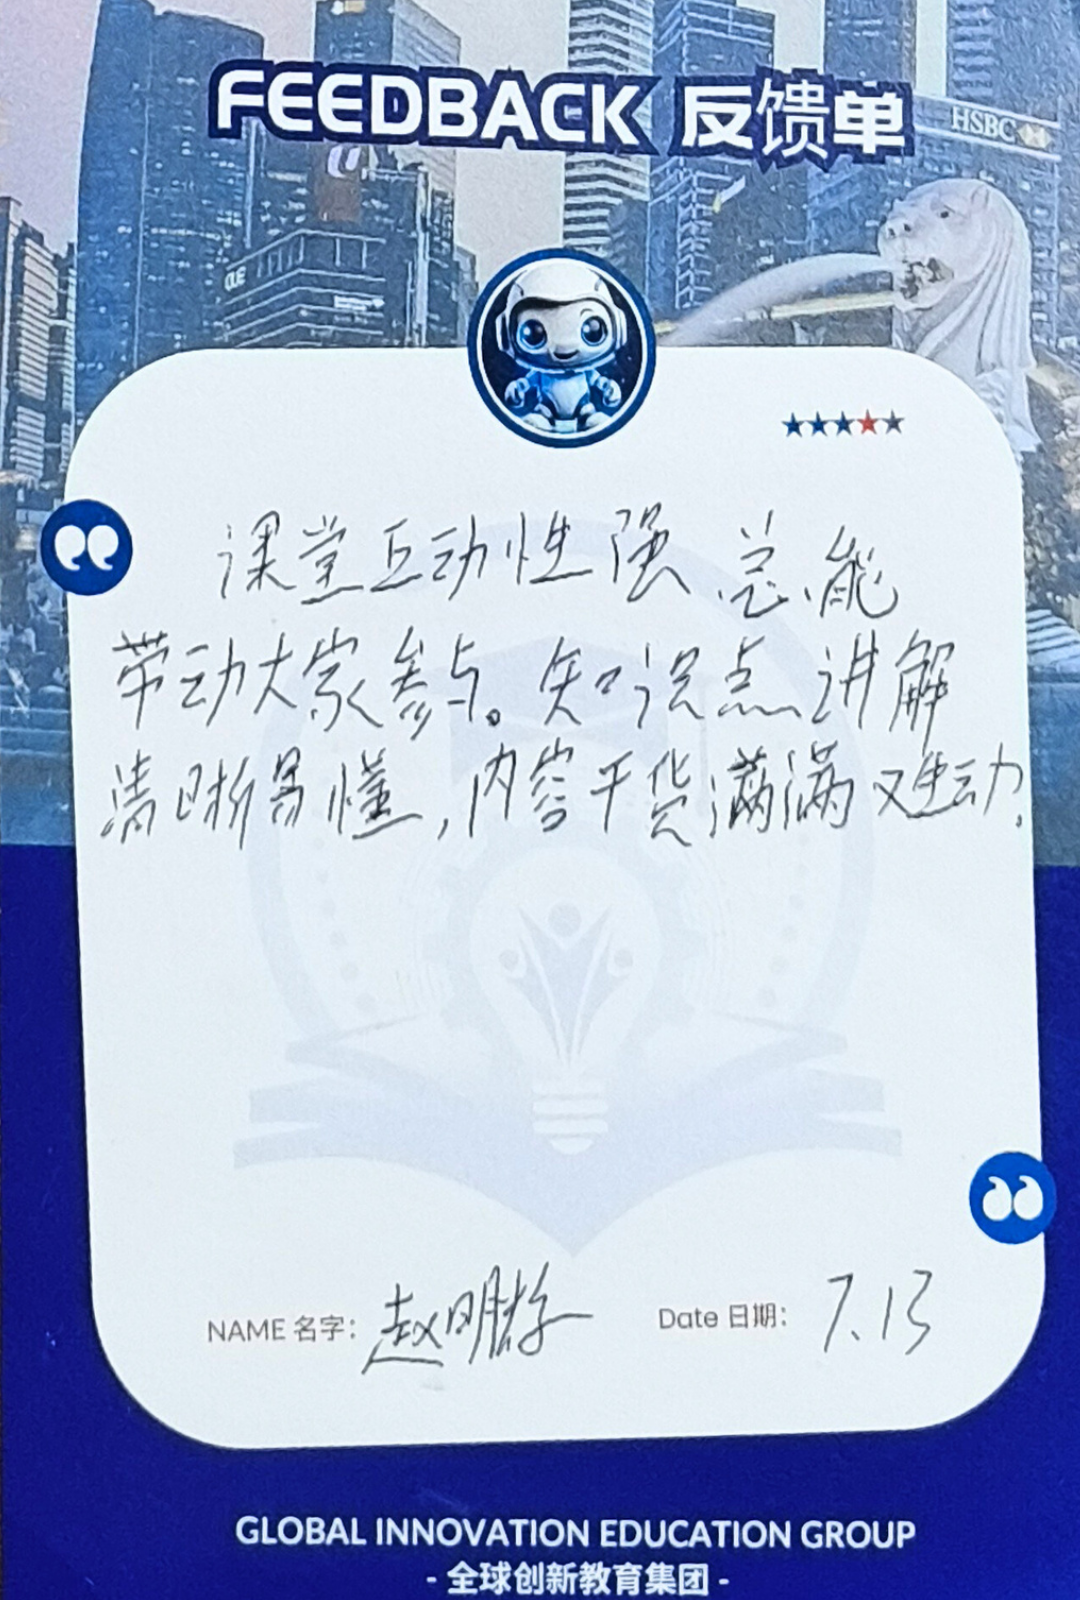 FEEDBACK 反馈单
HSBC
课堂互动性强,总能
带动大家参与。知识点讲解
清晰易懂,内容干货满满又生动.
NAME 名字: 赵明
Date 日期: 7.13
GLOBAL INNOVATION EDUCATION GROUP
- 全球创新教育集团 -